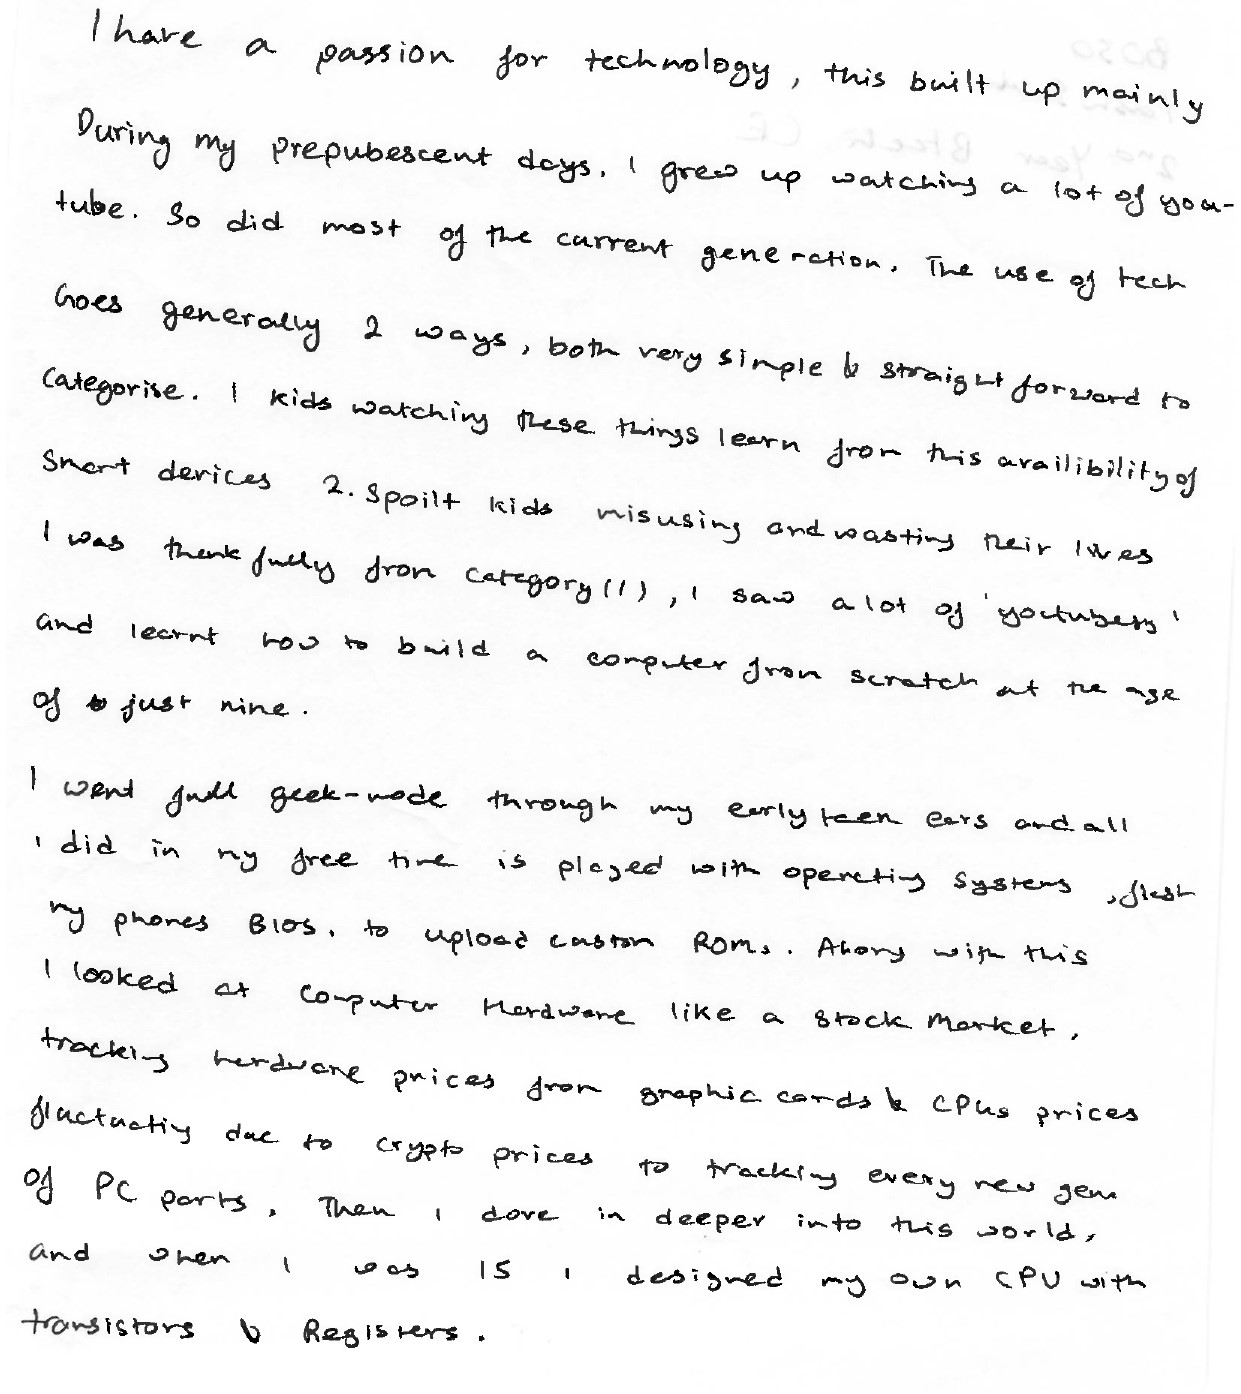 I have a passion for technology, this built up mainly
During my prepubescent days. I grew up watching a lot of you-
tube. So did most of the current generation. The use of tech
Goes generally 2 ways, both very simple & straight forward to
Categorise. 1 kids watching these things learn from this availibility of
Smart devices 2. Spoilt kids misusing and wasting their lives
I was thankfully from category (1), I saw a lot of 'youtubers'
and learnt how to build a computer from scratch at the age
of just nine.
I went full geek-mode through my early teen ears and all
I did in my free time is played with operating systems, flash
my phones BIOS. to upload custom ROMs. Along with this
I looked at Computer Hardware like a Stock Market,
tracking hardware prices from graphic cards & CPUs prices
fluctuating due to crypto prices to tracking every new gen
of PC parts. Then I dove in deeper into this world,
and when I was 15 I designed my own CPU with
transistors & Registers.